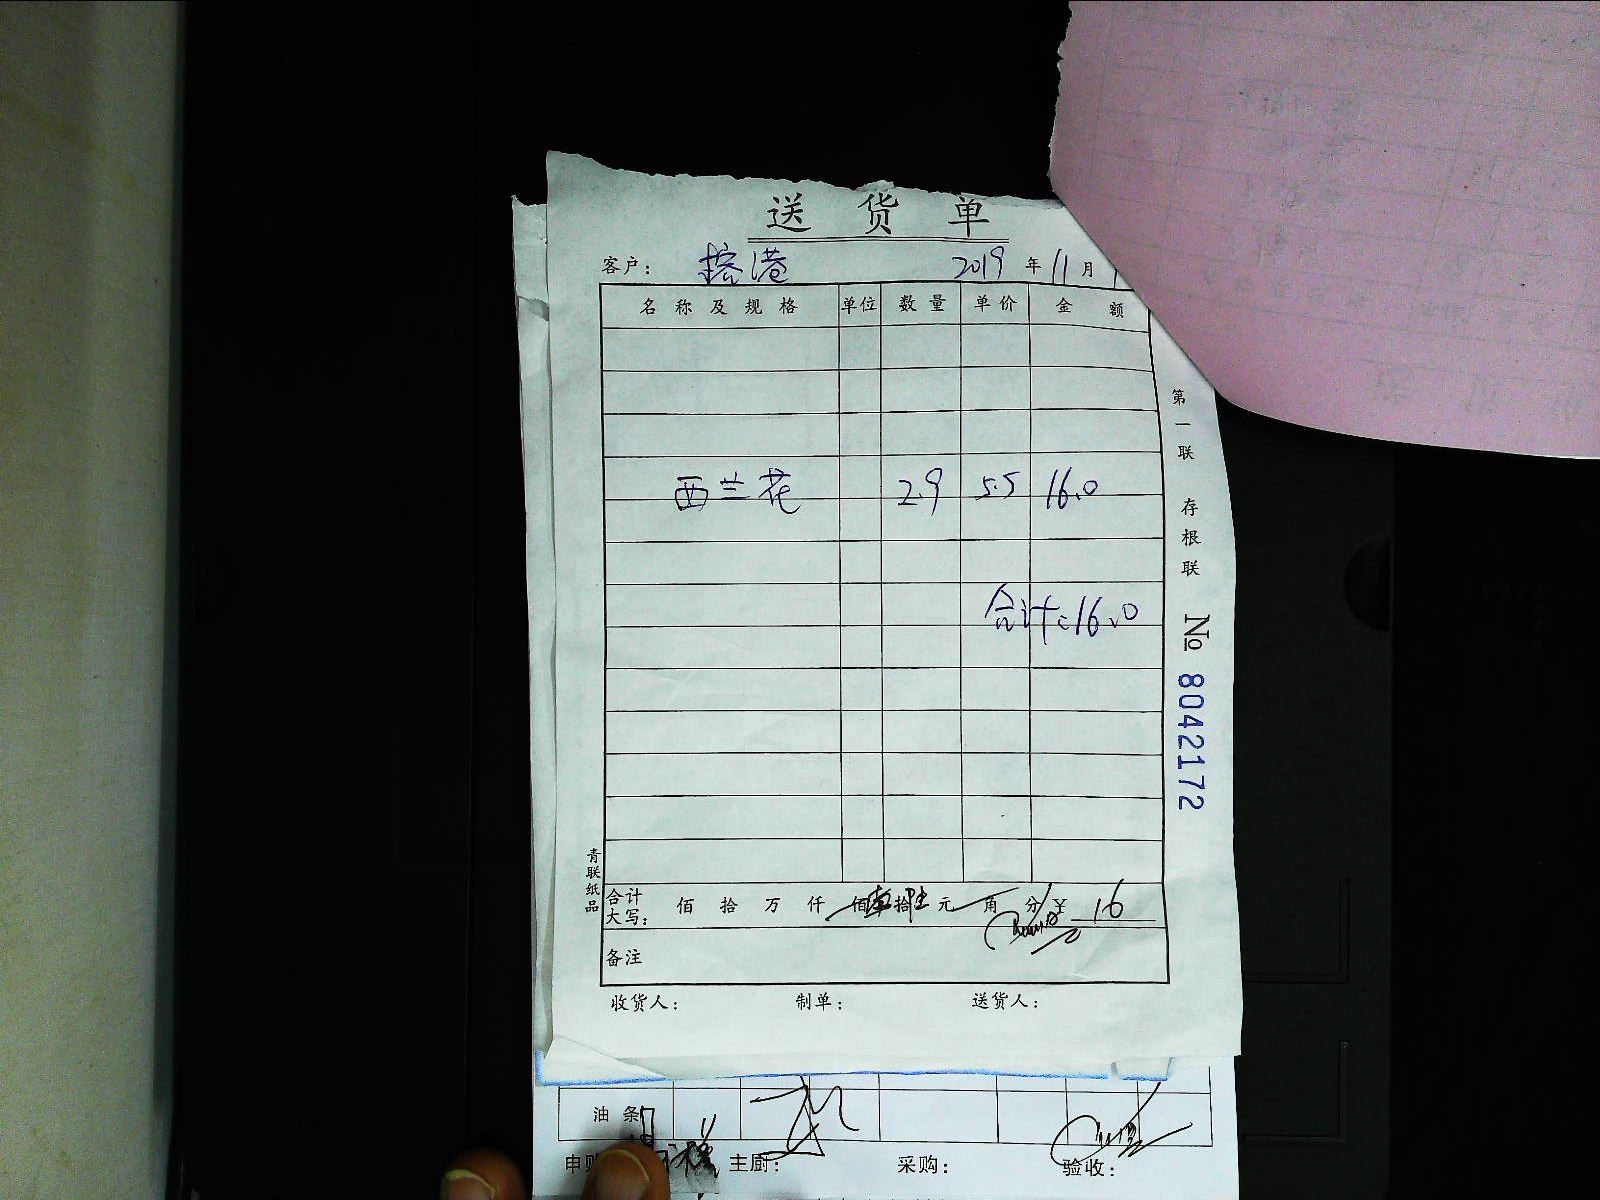 送货单
客户： 榕港 2019 年 11 月
名称及规格 单位 数量 单价 金额
西兰花 2.9 5.5 16.0
合计:16.0
合计大写： 佰 拾 万 仟 佰 壹拾陆元 角 分 ¥ 16
备注
收货人： 制单： 送货人：
第一联 存根联
№ 8042172
青联纸品
油条
主厨： 采购： 验收：